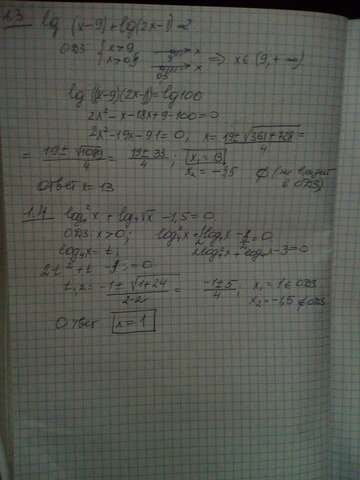 1.3 lg (x-9)+lg(2x-1)=2
ОДЗ { x>9, x>0,5 → x → x ⇒ x∈(9,+∞)
lg((x-9)(2x-1))=lg100
2x²-x-18x+9-100=0
2x²-19x-91=0, x= 19±√361+728 / 4 =
= 19±√1089 / 4 = 19±33 / 4 ; x₁=13
x₂=-3,5 ∅ (не входит в ОДЗ)
Ответ x=13
1.4 log₄²x+log₄√x-1,5=0
ОДЗ x>0;
log₄x=t, 2log₄²x+log₄x-3=0
2t²+t =0
t₁,₂= -1±√1+24 / 2·2 = -1±5 / 4 ; x₁=1∈ОДЗ
x₂=-1,5∉ОДЗ
Ответ x=1